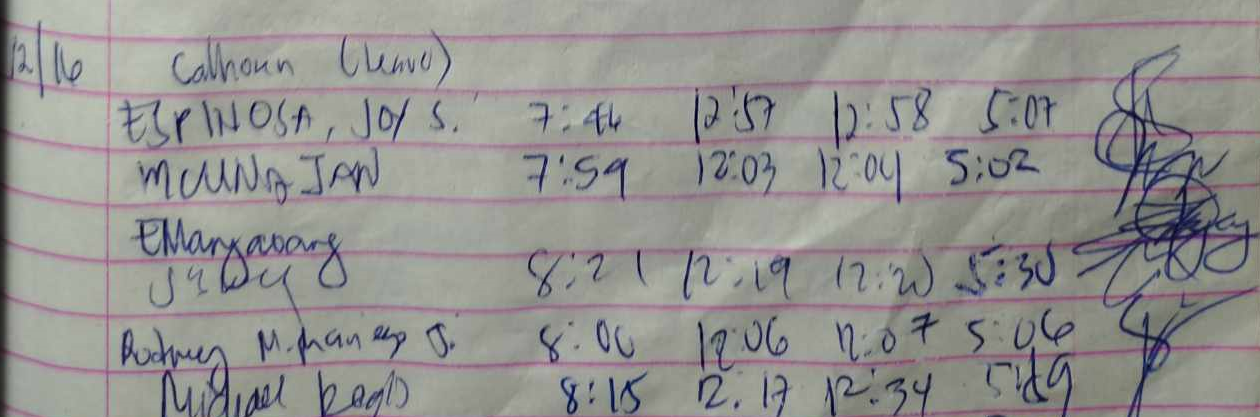 12/16 Calhoun (Leave)
ESPINOSA, JOY S. 7:44 12:57 12:58 5:07
JAN 7:59 12:03 12:04 5:02
8:21 12:19 12:20 5:30
Rodney M. J. 8:06 12:06 12:07 5:06
Michael 8:15 12:17 12:34